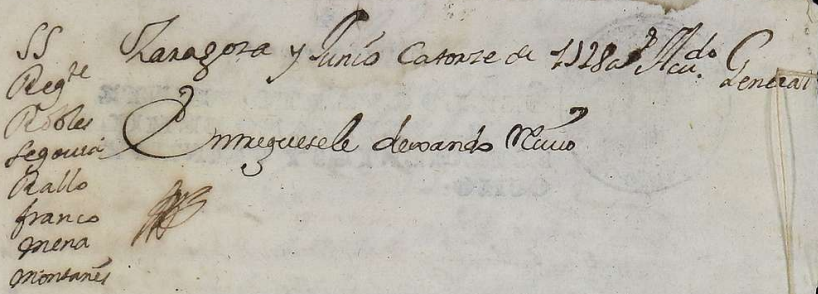 SS
Reg.te
Robles
Segovia
Rallo
franco
Mena
Montanes
Zaragoza y Junio Catorze de 1728 a.s Acu.do General
Entreguesele dexando Reciuo